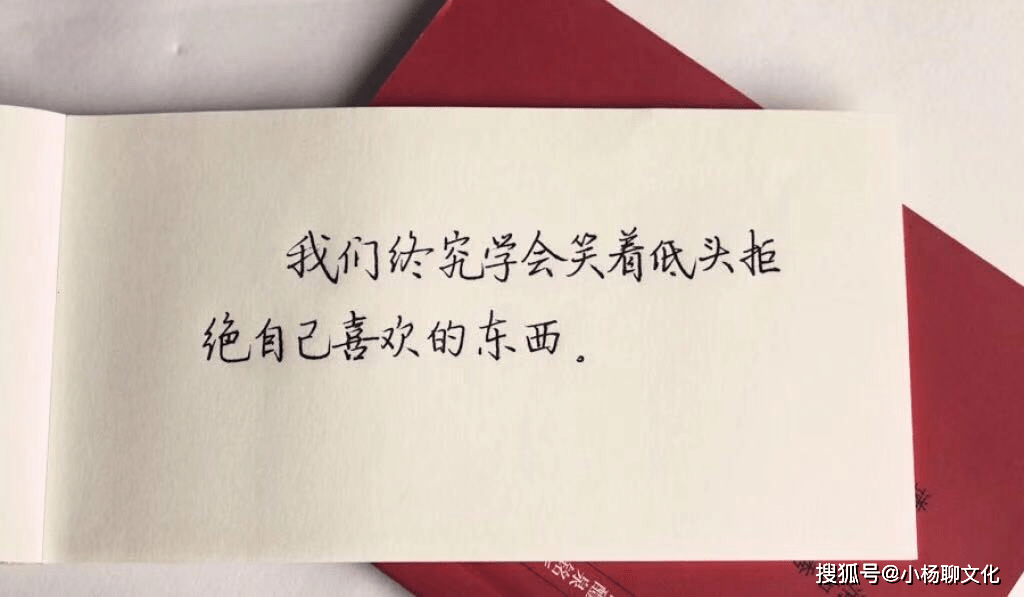 我们终究学会笑着低头拒
绝自己喜欢的东西。
搜狐号@小杨聊文化